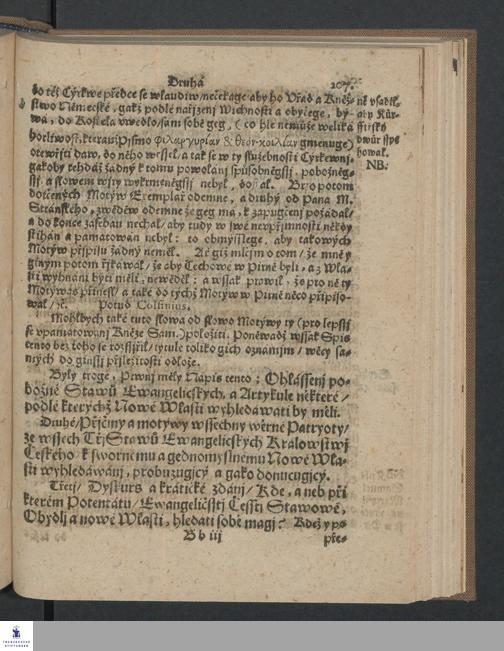 Druhá 207.
do též Cýrkwe předce se wlaudiw/nečekage aby ho Vřad a Kněž-
stwo Německé, gakž podlé nařízenj Wrchnosti a obyčege, bý-
wá, do Kostela vwedlo/sám sobě geg, (co hle nemůže weliká
horliwost, kterauž Pjsmo φιλαργυρίαν & θεὸν κοιλίαν gmenuge)
otewřjti daw, do něho wssel, a tak se w ty služebnosti Cýrkewnj
gakoby tehdáž žádný k tomu powolánj spůsobněgssj, pobožněg-
ssj, a slowem wjry wykrmeněgssj nebyl, dostal. Bržo potom
dotčených Motýw Exemplář odemne, a druhý od Pana M.
Stránského, zwěděw odemne že geg má, k zapůgčenj požádal/
a do konce zařebau nechal/aby tudy w swé nevpřjmnosti někdy
stihán a pamatowán nebyl: to obmýsslege, aby takowých
Motýw přjpisu žádný neměl. Ač giž mlčjm o tom / že mně y
giným potom řjkáwal / že aby Čechowé w Pirně byli, a z Wla-
sti wyhnáni býti měli, newěděl: a wssak prawil, že pro ně ty
Motýwy přinesl/ a také do týchž Motýw w Pirně něco připiso-
wal / ꝛc. Potud Collinus.
Mohlbych také tuto slowa od slowa Motýwy ty (pro lepssj
se vpamatowánj Kněze Sam.) položiti. Poněwadž wssak Spis
tento bez toho se rozssjřil/ tytule toliko gich oznámjm / wěcy sa-
mých do ginssj přjležitosti odlože.
Byly trogé, Prwnj měly Nápis tento: Ohlássenj po-
božné Stawů Ewangelických, a Artykule některé /
podlé kterýchž Nowé Wlasti wyhledáwati by měli.
Druhé/Přjčiny a motywy wssechny wěrné Patryoty/
ze wssech Třj Stawů Ewangelických Králowstwj
Českého/ k swornému a gednomyslnému Nowé Wla-
sti wyhledáwánj, probuzugjcý a gako donucugjcý.
Třetj/ Dyskurs a krátické zdánj / Kde, a neb při
kterém Potentátu/ Ewangelisstj Čessti Stawowé,
Obydlj a nowé Wlasti, hledati sobě magj? Kdež y ps
B b iij pře-
ně vsadil,
aby Kůr-
ffirský
dwůr ssps
howal.
NB.